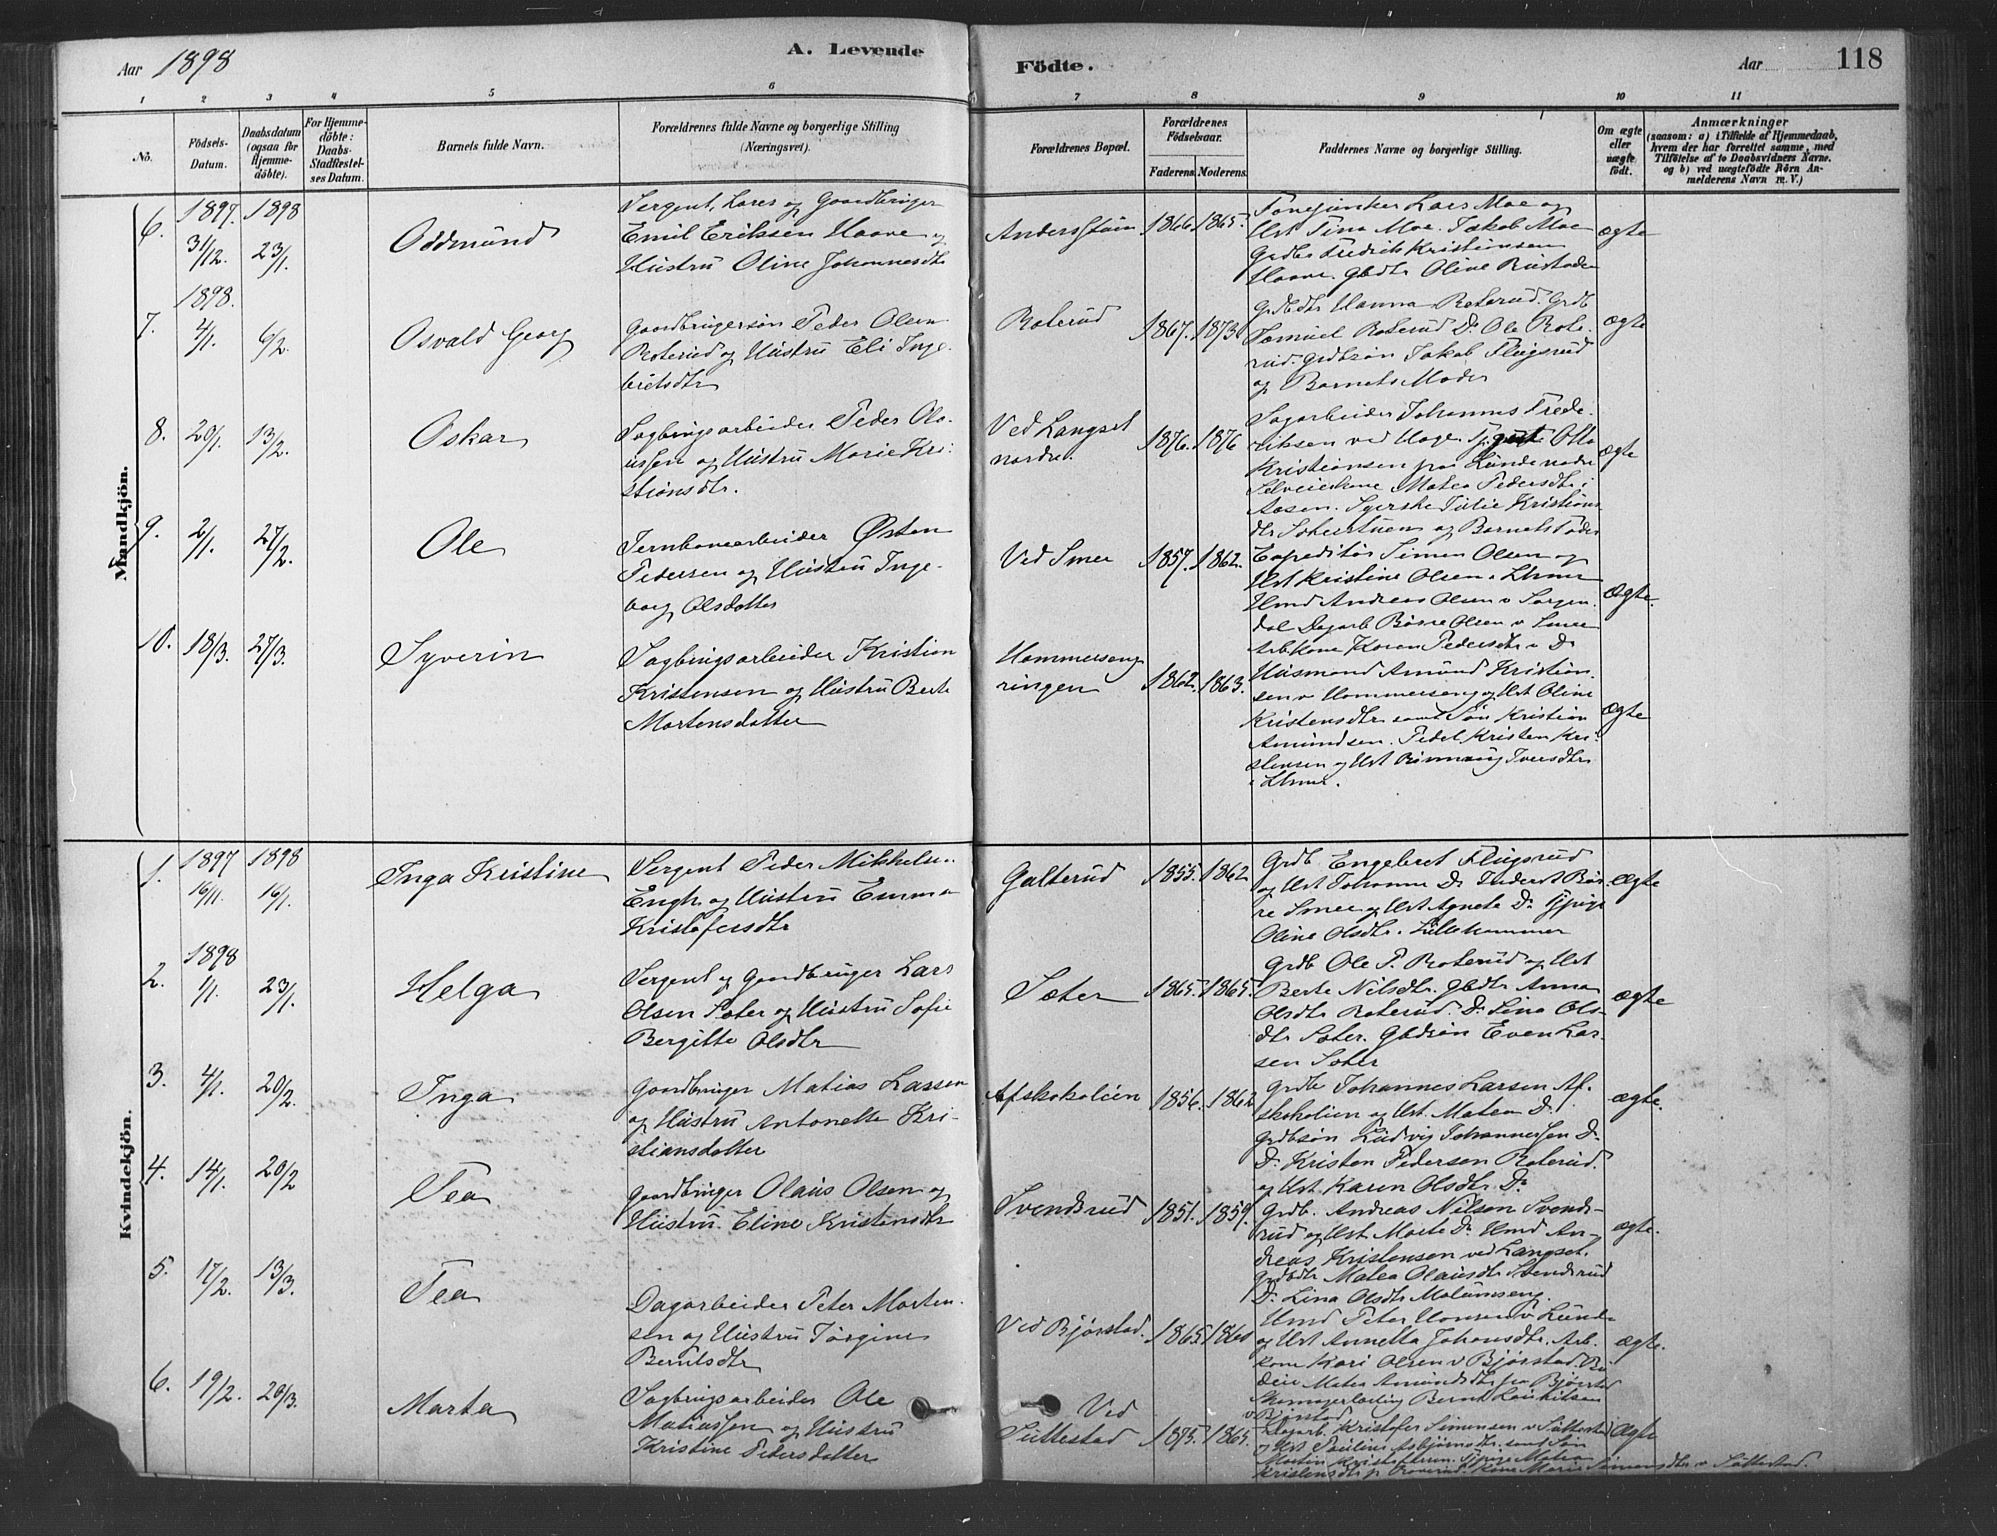 Aar 1898
A. Levende
Födte.
Aar
118
1 2 3 4 5 6 7 8 9 10 11
No.
Födsels-
Datum.
Daabsdatum
(ogsaa for
Hjemme-
döbte).
For Hjemme-
döbte:
Daabs-
Stadfæstel-
ses Datum.
Barnets fulde Navn.
Forældrenes fulde Navne og borgerlige Stilling
(Næringsvei).
Forældrenes Bopæl.
Forældrenes
Födselsaar.
Faderens. Moderens.
Faddernes Navne og borgerlige Stilling.
Om ægte
eller
uægte
födt.
Anmærkninger
(saasom: a) i Tilfælde af Hjemmedaab,
hvem der har forrettet samme, med
Tilföielse af to Daabsvidners Navne,
og b) ved uægtefödte Börn An-
melderens Navn m. V.)
Mandkjön.
6. 1897. 31/12. 1898 23/1. Oddmund
Sergent, Lærer og Gaardbruger
Emil Eriksen Haave og
Hustru Oline Johannesdtr
1866 1865.
Lars Moe og
Hst Tina Moe. Jakob Moe
Grdbr Fredrik Kristiansen
Haave. Gbdtr Oline Rustaden
ægte
7. 1898. 4/1. 6/2. Osvald Georg
Gaardbrugersøn Peder Olsen
Roterud og Hustru Eli Inge-
brietsdtr
Roterud
1867. 1873.
Grdbdtr Hanna Roterud. Grdb
Samuel Roterud Do Ole Rote-
rud. Grdbsøn Jakob Flugsrud
og Barnets Moder
ægte
8. 20/1. 13/2. Oskar
Sagbrugsarbeider Peder Ola-
ussen og Hustru Marie Kri-
stiansdtr.
Ved Langset
nordre.
1876. 1876
Sagarbeider Johannes Frede-
riksen ved Hage. Tj.gut Otto
Kristiansen paa Lunde nordre
Selveierkone Matea Pedersdtr i
Aasen. Syerske Julie Kristians
dtr og Barnets Fader
ægte
9. 2/1. 27/2. Ole
Jernbanearbeider Østen
Pedersen og Hustru Inge-
borg Olsdatter
Ved Smee
1857. 1862.
Expeditør Simen Olsen og
Hst Kristine Olsen
Hmd Andreas Olsen v Sorgen-
dal Dagarb Børre Olsen v Smee
Arb.kone Karen Pedersdtr v Do
ægte.
10. 18/3. 27/3. Syverin
Sagbrugsarbeider Kristian
Kristensen og Hustru Berte
Mortensdatter
Hammerseng
ringen
1862. 1863.
Husmand Amund Kristian-
sen v Hammerseng og Hst Oline
Kristensdtr samt Søn Kristian
Amundsen. Kristen Kri-
stensen og Hst Rinnaug Iversdtr
ægte
Kvindekjön.
1. 1897 16/11. 1898 16/1. Inga Kristine
Sergent Peder Mikkelsen
Engh og Hustru Emma
Kristofersdtr
Galterud
1855. 1862
Grdb Engebret Flugsrud
og Hst Johanne Do Bør-
re Smee og Hst Agnete Do Tjpige
Oline Olsdtr. Lillehammer
ægte
2. 1898 1/1. 23/1. Helga
Sergent og Gaardbruger Lars
Olsen Sæter og Hustru Sofie
Bergitte Olsdtr
Sæter
1865. 1865.
Grdb Ole P. Roterud og Hst
Berte Nilsdtr. Gbdtr Anna
Olsdtr Roterud. Do Lina Ols-
dtr Sæter. Gbdsøn Even Lar-
sen Sæter
ægte
3. 4/1. 20/2. Inga
Gaardbruger Matias Larsen
og Hustru Antonette Kri-
stiansdatter
Afskokalien
1856. 1862
Grdb Johannes Larsen Af-
skokalien og Hst. Matea Do.
Grdbsøn Ludvig Johannessen Do.
Do. Kristen Pedersen Roterud.
og Hst Karen Olsdtr Do
ægte.
4. 14/1. 20/2 Tea
Gaardbruger Olaus Olsen og
Hustru Eline Kristensdtr
Svendsrud
1851. 1859.
Grdb. Andreas Nilsen Svends-
rud og Hst Marte Do. Hmd An-
dreas Kristensen ved Langset.
Grdbdtr Matea Olausdtr Svendsrud
Do. Lina Olsdtr
ægte.
5. 17/2. 13/3. Tea
Dagarbeider Peter Morten-
sen og Hustru Jørgine
Berntsdtr
Ved Bjørstad.
1865. 1860
Hmd Peter Hansen v Lunde
og Hst Annetta Johansdtr. Arb.
kone Kari Olsen v Bjørstad. Bu-
deie Matea Amundsdtr fra Bjørstad
v Bjørstad
ægte.
6. 19/2. 20/3. Marta
Sagbrugsarbeider Ole
Matiassen og Hustru
Kristine Pedersdatter
Ved
Suttestad
1875. 1865.
Dagarb. Kristofer Simensen v Suttestad
og Hst Pauline Asbjørnsdtr. samt Søn
Martin Kristofersen. Tjpige Matea
Kristensdtr Kone Marie Simensdtr v Suttestad.
ægte